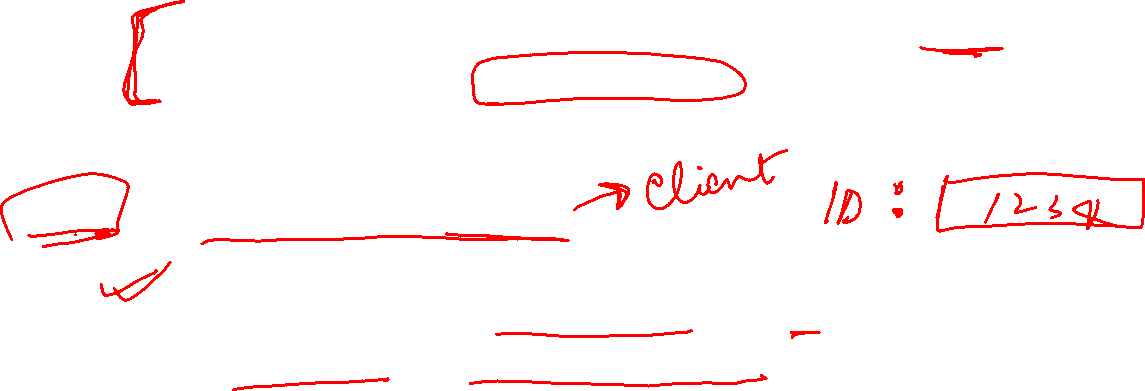 → Client ID: 1234